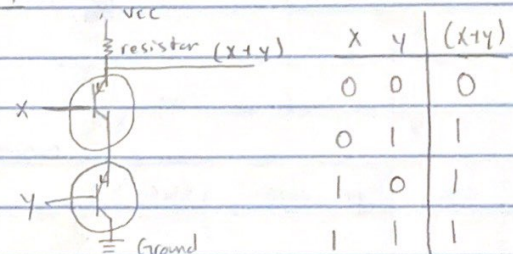 Vcc
resistor (x+y)
X
Y
Ground
X Y (x+y)
0 0 0
0 1 1
1 0 1
1 1 1